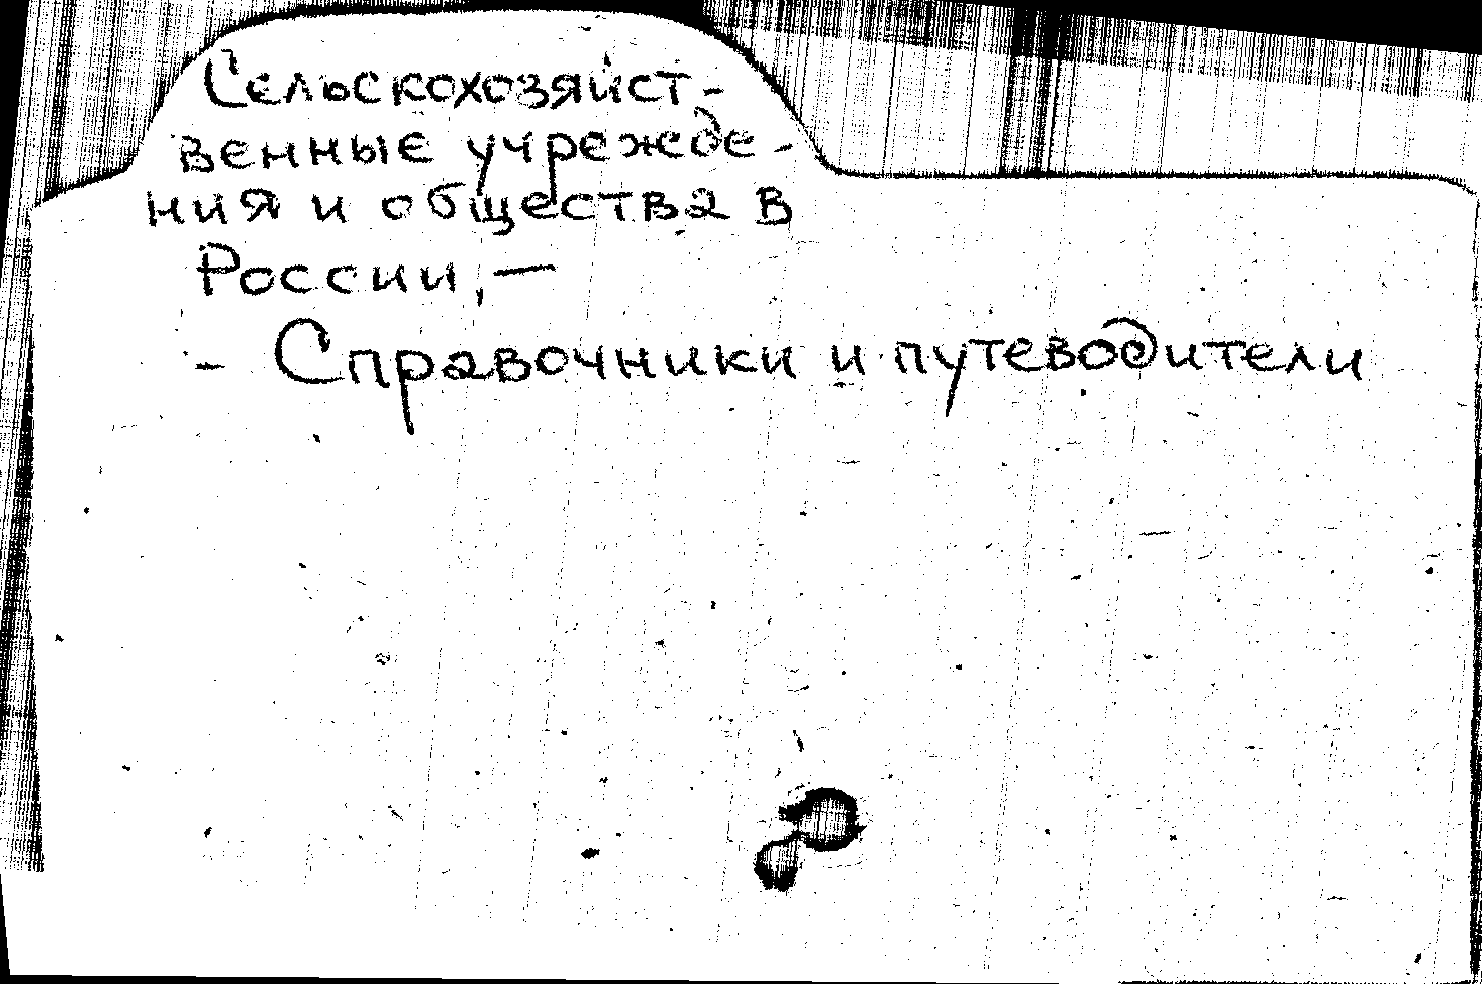 Сельскохозяйст-
венные учрежде-
ния и общества в
России, —
- Справочники и путеводители